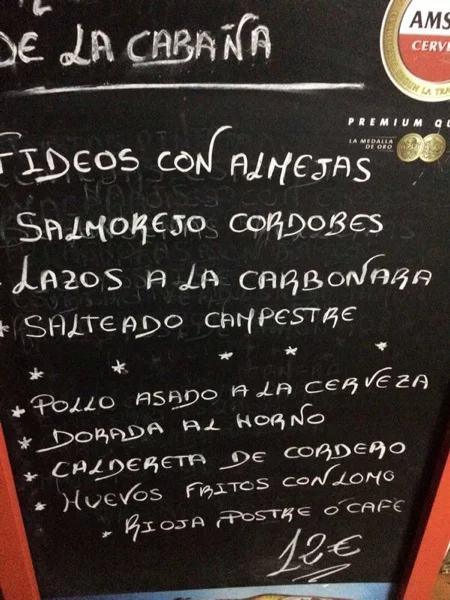 DE LA CABAÑA
AMS
CERVE
PREMIUM QU
LA MEDALLA
DE ORO
FIDEOS CON ALMEJAS
SALMOREJO CORDOBES
LAZOS A LA CARBONARA
* SALTEADO CAMPESTRE
* * * * *
* POLLO ASADO A LA CERVEZA
* DORADA AL HORNO
* CALDERETA DE CORDERO
* HUEVOS FRITOS CON LOMO
* RIOJA, POSTRE Ó CAFÉ
12€